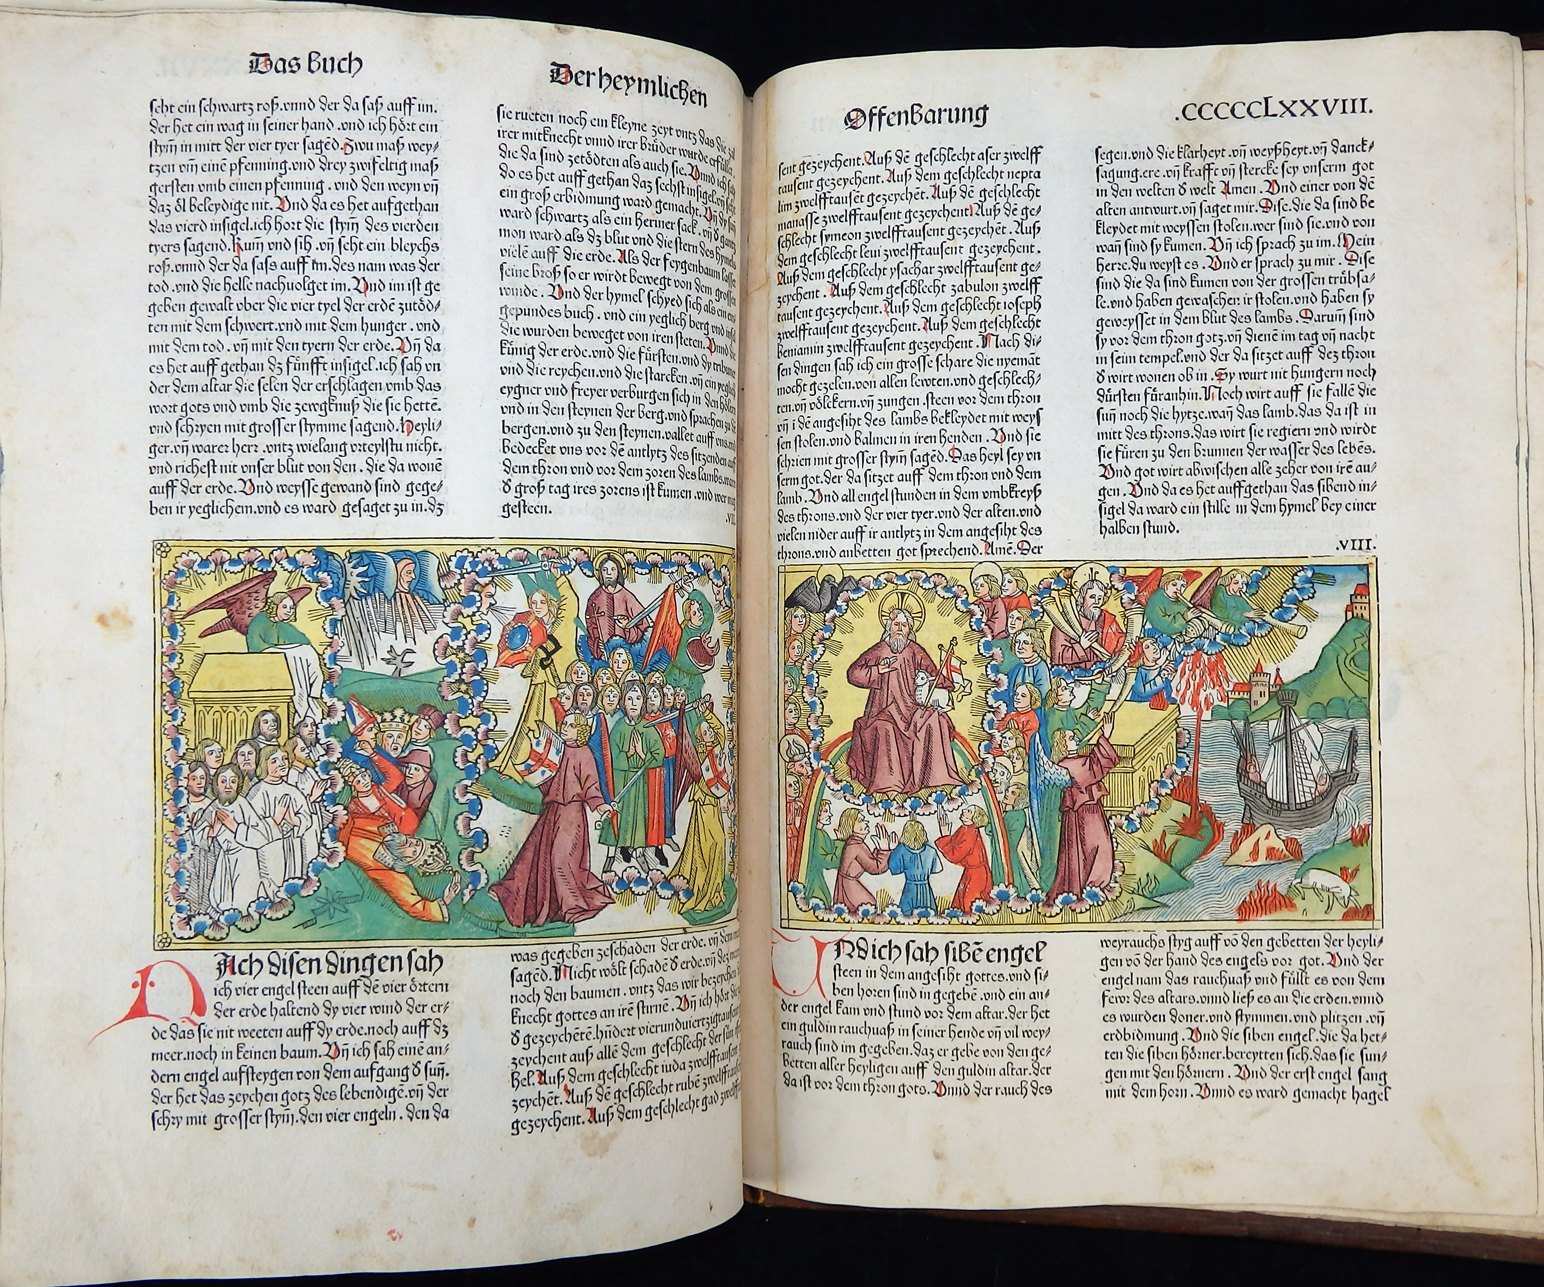 Das Buch
Der heymlichen
seht ein schwartz roß. vnnd der da saß auff im.
der het ein wag in seiner hand. vnd ich hört ein
stym̄ in mitt der vier tyer sagēd. Zwu maß wey⸗
tzen vm̄ einē pfenning. vnd drey zwifeltig maß
gersten vmb einen pfenning. vnd den weyn vn̄
daz öl beleydige nit. Vnd da es het aufgethan
das vierd insigel. ich hort die stym̄ des vierden
tyers sagend. Kum̄ vnd sih. vn̄ seht ein bleychs
roß. vnnd der da sass auff im. des nam was der
tod. vnd die helle nachuolget im. Vnd im ist ge
geben gewalt vber die vier tyel der erde zutöd⸗
ten mit dem schwert. vnd mit dem hunger. vnd
mit dem tod. vn̄ mit den tyern der erde. Vn̄ da
es het auff gethan dz fünfft insigel. ich sah vn
der dem altar die selen der erschlagen vmb das
wort gots vnd vmb die zewgknuß die sie hettē.
vnd schryen mit grosser stymme sagend. Heyli⸗
ger. vn̄ warer herr. vntz wielang vrteylstu nicht.
vnd richest nit vnser blut von den. die da wonē
auff der erde. Vnd weysse gewand sind gege⸗
ben ir yeglichem. vnd es ward gesaget zu in. dz
sie rueten noch ein kleyne zeyt vntz das die zal
irer mitknecht vnnd irer brüder wurde erfüllet.
die da sind zetödten als auch sie. Vnnd ich sah
do es het auff gethan daz sechst insigel. vn̄ seht
ein groß erbidmung ward gemacht. Vn̄ dy sun̄
ward schwartz als ein heriner sack. vn̄ d gantz
mon ward als dz blut vnd die stern des hymels
vielē auff die erde. Als der feygenbaum lasset
seine broß so er wirdt bewegt von dem grossen
winde. Vnd der hymel schyed sich als ein
gepundes buch. vnd ein yeglich berg vnd
die wurden beweget von iren steten. Vnnd die
künig der erde. vnd die fürsten. vnd dy tribuner
vnd die reychen. vnd die starcken. vn̄ ein yeglich
eygner vnd freyer verburgen sich in den hölen
vnd in den steynen der berg. vnd sprachen zu den
bergen. vnd zu den steynen. vallet auff vns. vnd
bedecket vns vor dē antlytz des sitzenden auf
dem thron vnd vor dem zoren des lambs. wann
d groß tag ires zorens ist kumen. vnd wer mag
gesteen.
.VII.
NAch disen dingen sah
ich vier engel steen auff dē vier örtern
der erde haltend dy vier wind der er⸗
de das sie nit weeten auff dy erde. noch auff dz
meer. noch in keinen baum. Vn̄ ich sah einē an⸗
dern engel aufsteygen von dem aufgang d sun̄.
der het das zeychen gotz des lebendigē. vn̄ der
schry mit grosser stym̄. den vier engeln. den da
was gegeben zeschaden der erde. vn̄ dem meer
sagēd. Nicht wölt schadē d erde. vn̄ dez meer
noch den baumen. vntz das wir bezeychen die
knecht gottes an irē stirnē. Vn̄ ich hört die zal
d gezeychetē. hūdert vierundviertzigtausent
zeychent auß allē dem geschlecht der sün
hel. Auß dem geschlecht iuda zwelfftausent
zeychēt. Auß dē geschlecht rubē zwelfftausent
gezeychent. Auß dem geschlecht gad zwelff
Offenbarung
.CCCCCCLXXVIII.
sent gezeychent. Auß dē geschlecht aser zwelff
tausent gezeychent. Auß dem geschlecht nepta
lim zwelfftausēt gezeychēt. Auß dē geschlecht
manasse zwelfftausent gezeychent. Auß dē ge⸗
schlecht symeon zwelfftausent gezeychēt. Auß
dem geschlecht leui zwelfftausent gezeychent.
Auß dem geschlecht ysachar zwelfftausent ge⸗
zeychent. Auß dem geschlecht zabulon zwelff
tausent gezeychent. Auß dem geschlecht ioseph
zwelfftausent gezeychent. Auß dem geschlecht
beniamin zwelfftausent gezeychent. Nach di⸗
sen dingen sah ich ein grosse schare die nyemāt
mocht gezelen. von allen lewten. vnd geschlech⸗
ten. vn̄ völckern. vn̄ zungen. steen vor dem thron
vn̄ ī dē angesiht des lambs bekleydet mit weys
sen stolen. vnd balmen in iren henden. Vnd sie
schrien mit grosser stym̄ sagēd. Das heyl sey vn
serm got. der da sitzet auff dem thron vnd dem
lamb. Vnd all engel stunden in dem vmbkreyß
des throns. vnd der vier tyer. vnd der alten. vnd
vielen nider auff ir antlytz in dem angesiht des
throns. vnd anbetten got sprechend. Amē. Der
segen. vnd die klarheyt. vn̄ weyßheyt. vn̄ danck⸗
sagung. ere. vn̄ krafft vn̄ stercke sey vnserm got
in den welten d welt Amen. Vnd einer von dē
alten antwurt. vn̄ saget mir. Dise. die da sind be
kleydet mit weyssen stolen. wer sind sie. vnd von
wan̄ sind sy kumen. Vn̄ ich sprach zu im. Mein
herre. du weyst es. Vnd er sprach zu mir. Dise
sind die da sind kumen von der grossen trübsa⸗
le. vnd haben gewaschen ir stolen. vnd haben sy
geweysset in dem blut des lambs. Darum̄ sind
sy vor dem thron gotz. vn̄ dienē im tag vn̄ nacht
in seim tempel. vnd der da sitzet auff dez thron
d wirt wonen ob in. Sy wurt nit hungern noch
dürsten füranhin. Noch wirt auff sie fallē die
sun̄ noch die hytze. wan̄ das lamb. das da ist in
mitt des throns. das wirt sie regiern vnd wirdt
sie füren zu den brunnen der wasser des lebēs.
Vnd got wirt abwischen alle zeher von irē au⸗
gen. Vnd da es het auffgethan das sibend in⸗
sigel da ward ein stille in dem hymel bey einer
halben stund.
.VIII.
VNd ich sah sibē engel
steen in dem angesiht gottes. vnd si⸗
ben horen sind in gegebē. vnd ein an⸗
der engel kam vnd stund vor dem altar. der het
ein guldin rauchuaß in seiner hende vn̄ vil wey⸗
rauch sind im gegeben. daz er gebe von den ge⸗
betten aller heyligen auff den guldin altar. der
da ist vor dem thron gots. Vnnd der rauch des
weyrauchs styg auff vō den gebetten der heyli⸗
gen vō der hand des engels vor got. Vnd der
engel nam das rauchuaß vnd füllt es von dem
fewr des altars. vnnd ließ es an die erden. vnnd
es wurden doner. vnd stymmen. vnd plitzen. vn̄
erdbidmung. Vnd die siben engel. die da het⸗
ten die siben hörner. bereytten sich. das sie sun⸗
gen mit den hörnern. Vnd der erst engel sang
mit dem horn. Vnnd es ward gemacht hagel